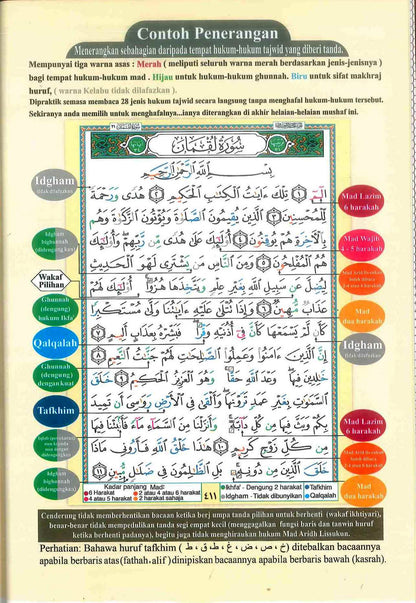 Contoh Penerangan
Menerangkan sebahagian daripada tempat hukum-hukum tajwid yang diberi tanda.
Mempunyai tiga warna asas : Merah ( meliputi seluruh warna merah berdasarkan jenis-jenisnya )
bagi tempat hukum-hukum mad . Hijau untuk hukum-hukum ghunnah. Biru untuk sifat makhraj
huruf, ( warna Kelabu tidak dilafazkan ).
Dipraktik semasa membaca 28 jenis hukum tajwid secara langsung tanpa menghafal hukum-hukum tersebut.
Sekiranya anda memilih untuk menghafalnya...ianya diterangkan di akhir helaian-helaian mushaf ini.
سورة لقمان
بسم الله الرحمن الرحيم
الم ١ تلك ءايت الكتب الحكيم ٢ هدى ورحمة
للمحسنين ٣ الذين يقيمون الصلوة ويؤتون الزكوة وهم
بالأخرة هم يوقنون ٤ أولئك على هدى من ربهم وأولئك
هم المفلحون ٥ ومن الناس من يشترى لهو الحديث
ليضل عن سبيل الله بغير علم ويتخذها هزوا أولئك لهم
عذاب مهين ٦ وإذا تتلى عليه ءايتنا ولى مستكبرا
كأن لم يسمعها كأن فى أذنيه وقرا فبشره بعذاب أليم ٧
إن الذين ءامنوا وعملوا الصلحت لهم جنت النعيم ٨
خلدين فيها وعد الله حقا وهو العزيز الحكيم ٩ خلق
السموت بغير عمد ترونها وألقى فى الأرض روسى أن تميد
بكم وبث فيها من كل دابة وأنزلنا من السماء ماء فأنبتنا فيها
من كل زوج كريم ١٠ هذا خلق الله فأرونى ماذا
خلق الذين من دونه بل الظلمون فى ضلل مبين ١١
Idgham
tidak dilafazkan
Idgham
bighunnah
(didengungkan)
Wakaf
Pilihan
Ghunnah
(dengung)
hukum Ikfa'
Qalqalah
Ghunnah
(dengung)
dengan kuat
Tafkhim
Idgham
bighunnah
(didengungkan)
Mad Lazim
6 harakah
Mad Wajib
4 - 5 harakah
Mad Arid Lissukun
boleh dibaca
2 4 atau 6 harakah
Mad
dua harakah
Idgham
tidak dilafazkan
Mad Lazim
6 harakah
Mad Arid Lissukun
boleh dibaca
2 4 atau 6 harakah
Mad
dua harakah
Kadar panjang Mad:
6 Harakat 2 atau 4 atau 6 harakat
4 atau 5 harakat 2 harakah sahaja
٤١١
Ikhfa' - Dengung 2 harakat Tafkhim
Idgham - Tidak dibunyikan Qalqalah
Cenderung tidak memberhentikan bacaan ketika berj umpa tanda pilihan untuk berhenti (wakaf ikhtiyari),
benar-benar tidak mempedulikan tanda segi empat kecil (menggagalkan fungsi baris dan tanwin huruf
ketika berhenti padanya), begitu juga tidak menghiraukan hukum Mad Aridh Lissukun.
Perhatian: Bahawa huruf tafkhim ( خ ، ص ، ض ، غ ، ط ، ق ، ظ ) ditebalkan bacaannya
apabila berbaris atas (fathah، alif ) dinipiskan bacaannya apabila berbaris bawah (kasrah).